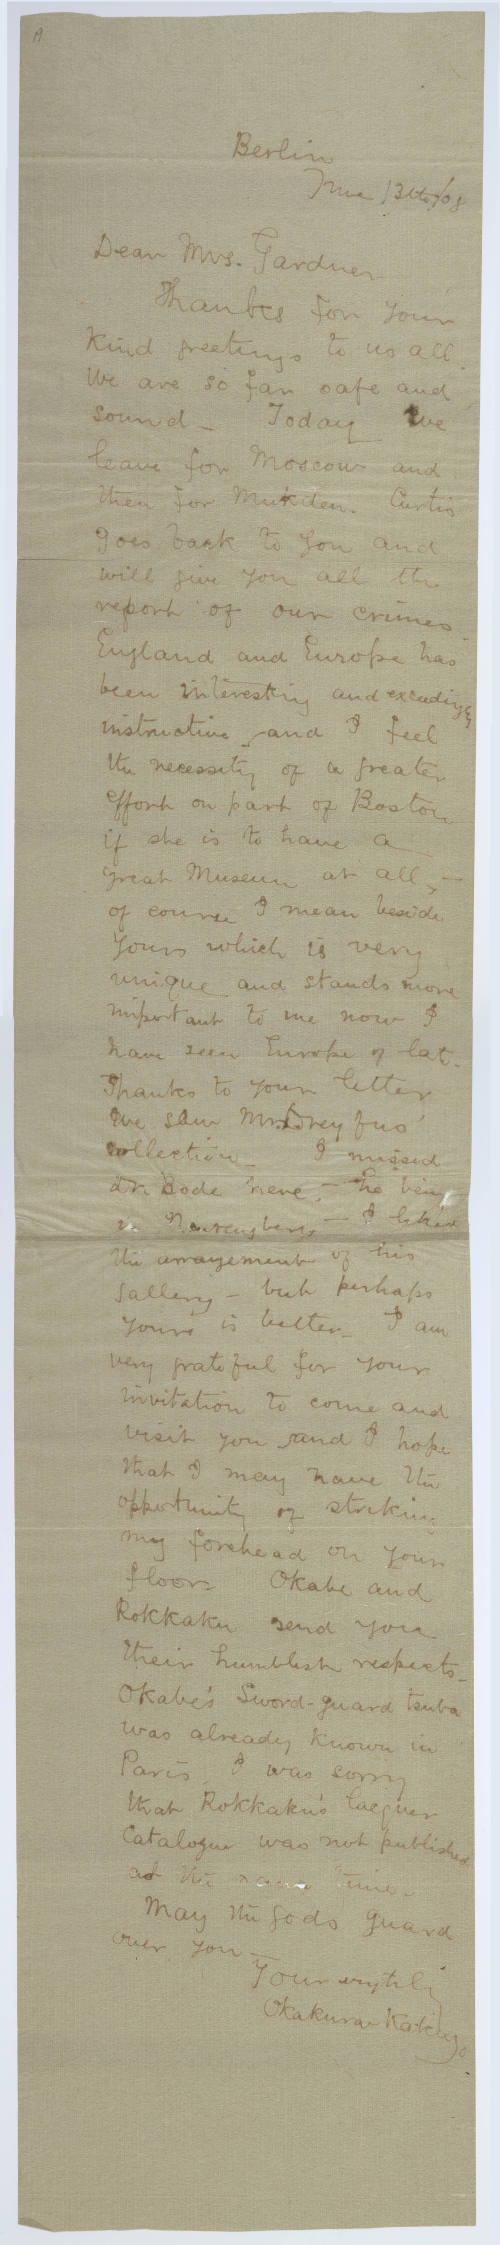 Berlin
June 13th/08
Dear Mrs. Gardner
Thanks for your
kind greetings to us all.
We are so far safe and
sound – Today we
leave for Moscow and
then for Mukden. Curtis
goes back to you and
will give you all the
report of our crimes.
England and Europe has
been interesting and exceedingly
instructive and I feel
the necessity of a greater
effort on part of Boston
if she is to have a
great Museum at all, –
of course I mean beside
yours which is very
unique and stands more
important to me now I
have seen Europe of lat.
Thanks to your letter
We saw Mr Dreyfus'
collection – I missed
Dr Bode here, – he being
in – I liked
the arrangement of his
gallery – but perhaps
yours is better – I am
very grateful for your
invitation to come and
visit you and I hope
that I may have the
opportunity of striking
my forehead on your
floor. Okabe and
Rokkaku send you
their humblest respects –
Okabe's Sword-guard tsuba
was already known in
Paris, I was sorry
that Rokkaku's lacquer
Catalogue was not published
at the same time.
May the gods guard
over you –
Your
Okakura Kakuzo